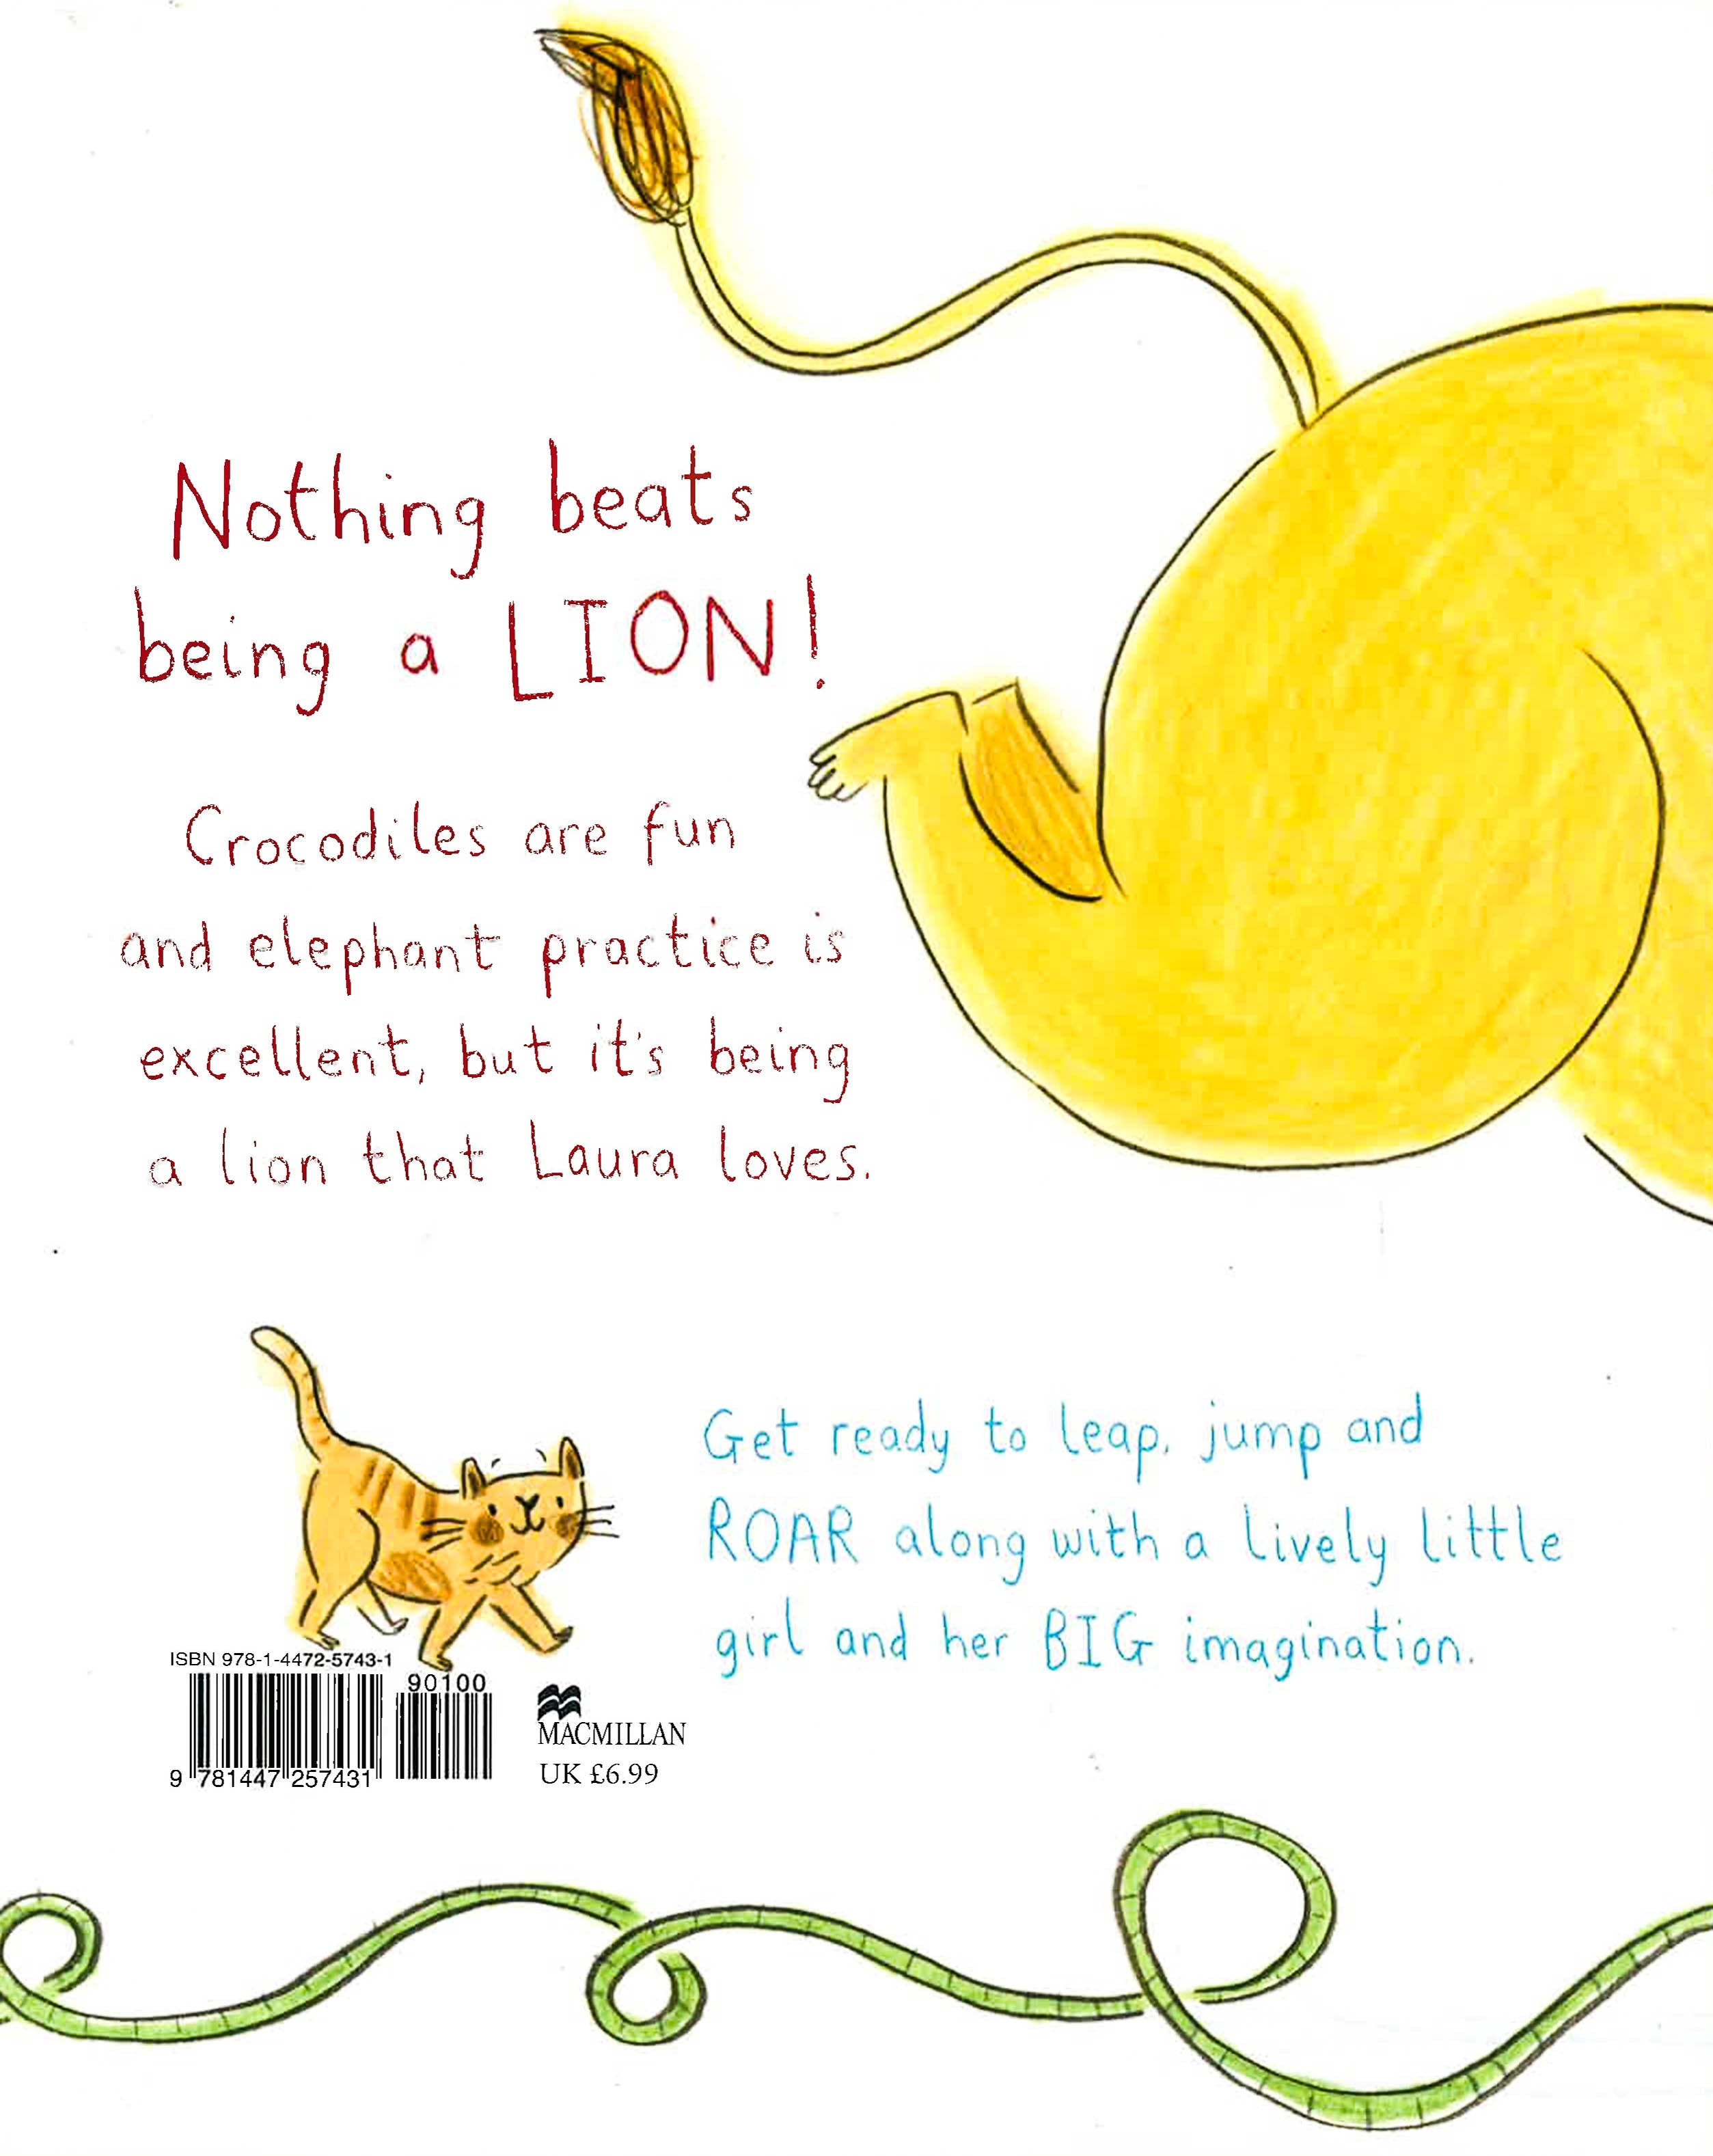 Nothing beats
being a LION!
Crocodiles are fun
and elephant practice is
excellent, but it's being
a lion that Laura loves.
Get ready to leap, jump and
ROAR along with a lively little
girl and her BIG imagination.
ISBN 978-1-4472-5743-1
90100
9 781447 257431
MACMILLAN
UK £6.99